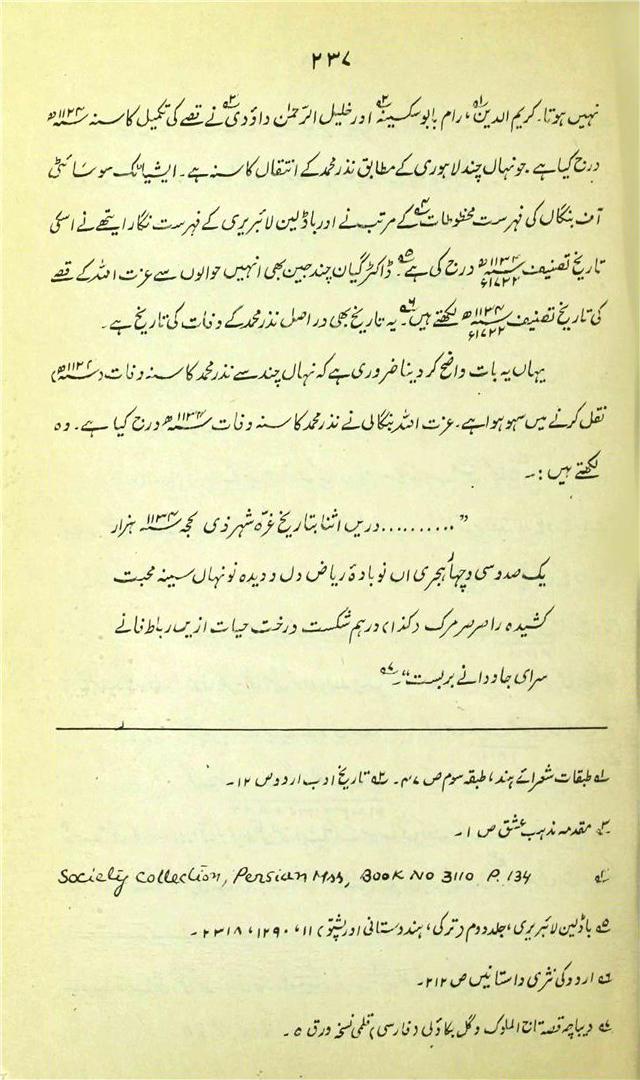 ۲۳۷
نہیں ہوتا۔ کریم الدین۱؎، رام بابو سکسینہ۲؎ اور خلیل الرحمٰن داؤدی۳؎ نے قصے کی تکمیل کا سنہ ۱۱۲۴ھ
درج کیا ہے۔ جو نہاں چند لاہوری کے مطابق نذر محمد کے انتقال کا سنہ ہے۔ ایشیاٹک سوسائٹی
آف بنگال کی فہرست مخطوطات۴؎ کے مرتب نے اور باڈلین لائبریری کے فہرست نگار ایتھے نے اسکی
تاریخ تصنیف ۱۱۳۴ھ ۱۷۲۲ء درج کی ہے۵؎۔ ڈاکٹر گیان چند جین بھی انہیں حوالوں سے عزت اللہ کے قصے
کی تاریخ تصنیف ۱۱۳۴ھ ۱۷۲۲ء لکھتے ہیں۶؎۔ یہ تاریخ بھی دراصل نذر محمد کے وفات کی تاریخ ہے۔
یہاں یہ بات واضح کر دینا ضروری ہے کہ نہاں چند سے نذر محمد کا سنہ وفات (۱۱۲۴ھ)
نقل کرنے میں سہو ہوا ہے۔ عزت اللہ بنگالی نے نذر محمد کا سنہ وفات ۱۱۳۴ھ درج کیا ہے۔ وہ
لکھتے ہیں :۔
”.......... دریں اثنا بتاریخ غرّہ شہر ذی حجہ ۱۱۳۴ سنہ ہزار
یک صد و سی و چہار ہجری آں نوبادۂ ریاض دل و دیدہ نو نہاں سینہ محبت
کشیدہ را صرصر مرک (کذا) درہم شکست درخت حیات ازیں رباط فانے
سرای جاودانے بر بست“۔۷؎
۱؎ طبقات شعرائے ہند، طبقہ سوم ص ۴۷۔ ۲؎ تاریخ ادب اردو ص ۱۲۔
۳؎ مقدمہ مذہب عشق ص ۱۔
۴؎ Society Collection, Persian Mss, Book No 3110 P. 134
۵؎ باڈلین لائبریری، جلد دوم (ترکی، ہندوستانی اور پشتو) ۱۱، ۱۲۹۰، ۲۳۱۸۔
۶؎ اردو کی نثری داستانیں ص ۲۱۲۔
۷؎ دیباچہ قصہ تاج الملوک و گل بکاؤلی (فارسی) قلمی نسخہ ورق ۵۔